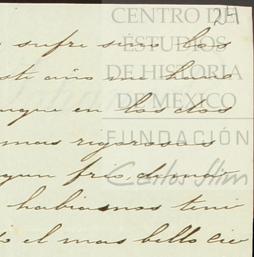 24
CENTRO DE
ESTUDIOS
DE HISTORIA
DE MEXICO
FUNDACIÓN
Carlos Slim
sufre sino los
este año un
aunque en los dos
mas rigorosos
algun frio, de
habiamos teni
el mas bello cie